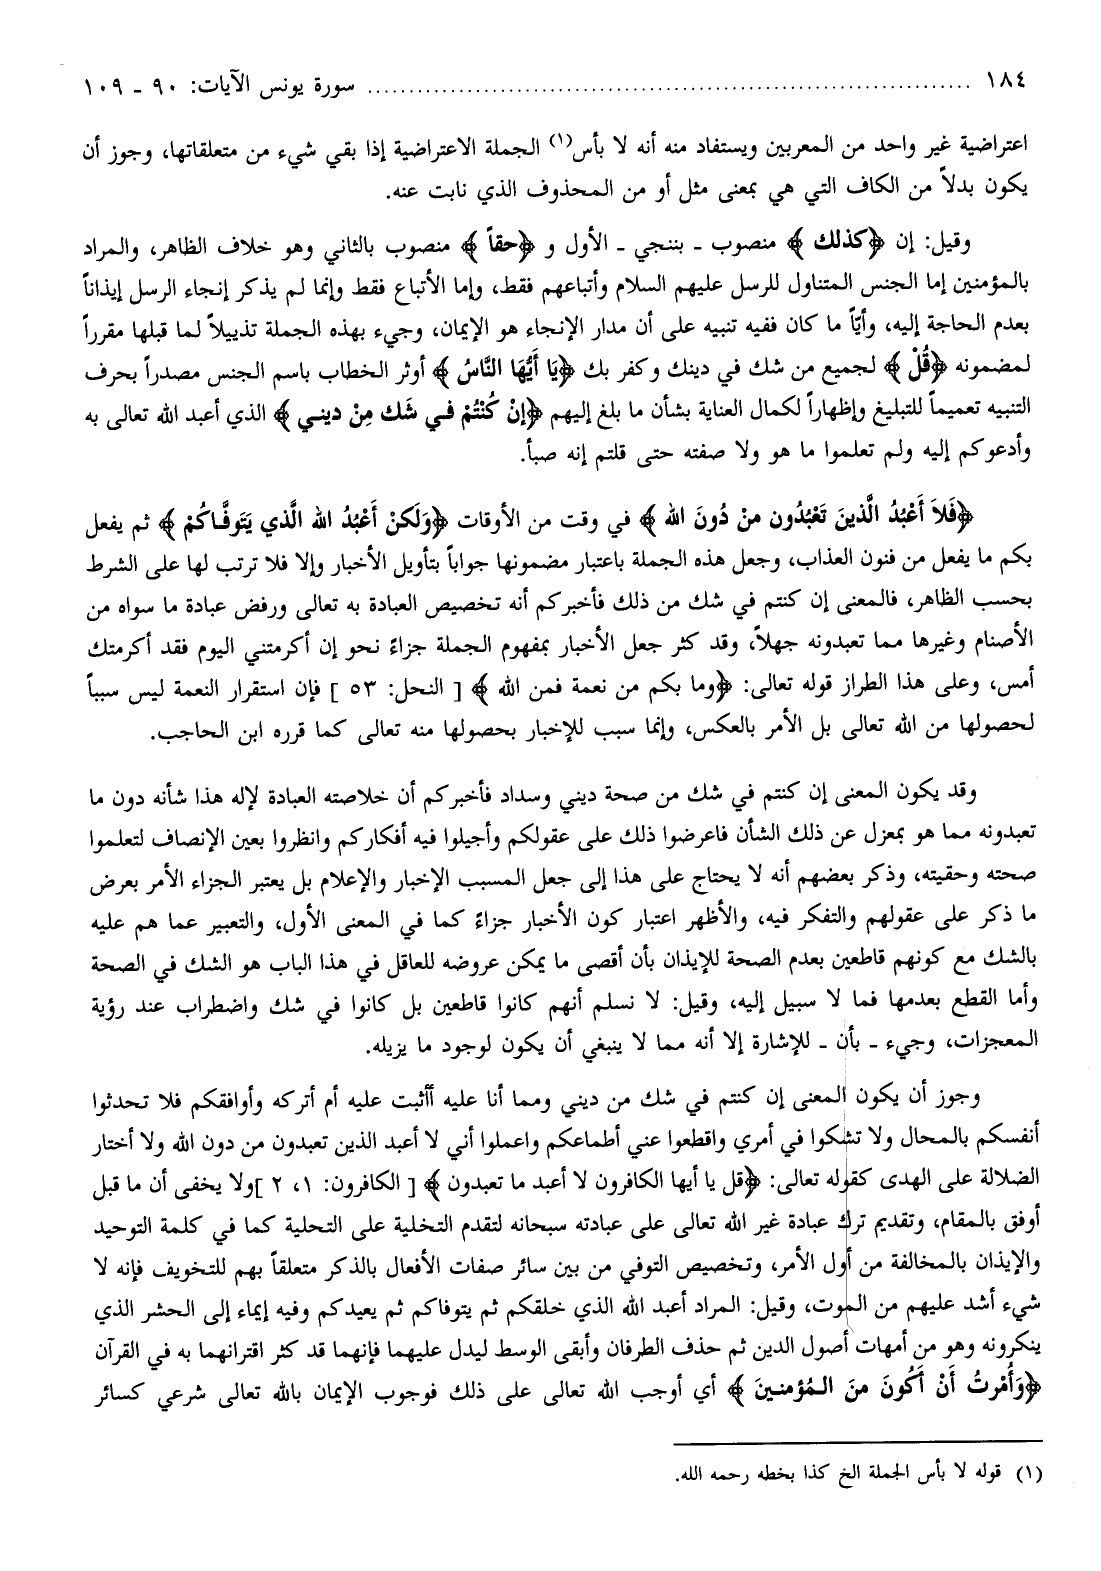 ١٨٤ ........................................................................ سورة يونس الآيات: ٩٠ ـ ١٠٩
اعتراضية غير واحد من المعربين ويستفاد منه أنه لا بأس(١) الجملة الاعتراضية إذا بقي شيء من متعلقاتها، وجوز أن
يكون بدلاً من الكاف التي هي بمعنى مثل أو من المحذوف الذي نابت عنه.
وقيل: إن ﴿كذلك﴾ منصوب ـ بننجي ـ الأول و ﴿حقاً﴾ منصوب بالثاني وهو خلاف الظاهر، والمراد
بالمؤمنين إما الجنس المتناول للرسل عليهم السلام وأتباعهم فقط، وإما الأتباع فقط وإنما لم يذكر إنجاء الرسل إيذاناً
بعدم الحاجة إليه، وأيّاً ما كان ففيه تنبيه على أن مدار الإنجاء هو الإيمان، وجيء بهذه الجملة تذييلاً لما قبلها مقرراً
لمضمونه ﴿قُلْ﴾ لجميع من شك في دينك وكفر بك ﴿يَا أَيُّهَا النَّاسُ﴾ أوثر الخطاب باسم الجنس مصدراً بحرف
التنبيه تعميماً للتبليغ وإظهاراً لكمال العناية بشأن ما بلغ إليهم ﴿إنْ كُنْتُمْ في شَك منْ ديني﴾ الذي أعبد الله تعالى به
وأدعوكم إليه ولم تعلموا ما هو ولا صفته حتى قلتم إنه صبأ.
﴿فَلاَ أَعْبُدُ الَّذينَ تَعْبُدُون منْ دُونَ الله﴾ في وقت من الأوقات ﴿وَلَكنْ أَعْبُدُ الله الَّذي يَتَوفَّاكُمْ﴾ ثم يفعل
بكم ما يفعل من فنون العذاب، وجعل هذه الجملة باعتبار مضمونها جواباً بتأويل الأخبار وإلا فلا ترتب لها على الشرط
بحسب الظاهر، فالمعنى إن كنتم في شك من ذلك فأخبركم أنه تخصيص العبادة به تعالى ورفض عبادة ما سواه من
الأصنام وغيرها مما تعبدونه جهلاً، وقد كثر جعل الأخبار بمفهوم الجملة جزاءً نحو إن أكرمتني اليوم فقد أكرمتك
أمس، وعلى هذا الطراز قوله تعالى: ﴿وما بكم من نعمة فمن الله﴾ [ النحل: ٥٣ ] فإن استقرار النعمة ليس سبباً
لحصولها من الله تعالى بل الأمر بالعكس، وإنما سبب للإخبار بحصولها منه تعالى كما قرره ابن الحاجب.
وقد يكون المعنى إن كنتم في شك من صحة ديني وسداد فأخبركم أن خلاصته العبادة لإله هذا شأنه دون ما
تعبدونه مما هو بمعزل عن ذلك الشأن فاعرضوا ذلك على عقولكم وأجيلوا فيه أفكاركم وانظروا بعين الإنصاف لتعلموا
صحته وحقيته، وذكر بعضهم أنه لا يحتاج على هذا إلى جعل المسبب الإخبار والإعلام بل يعتبر الجزاء الأمر بعرض
ما ذكر على عقولهم والتفكر فيه، والأظهر اعتبار كون الأخبار جزاءً كما في المعنى الأول، والتعبير عما هم عليه
بالشك مع كونهم قاطعين بعدم الصحة للإيذان بأن أقصى ما يمكن عروضه للعاقل في هذا الباب هو الشك في الصحة
وأما القطع بعدمها فما لا سبيل إليه، وقيل: لا نسلم أنهم كانوا قاطعين بل كانوا في شك واضطراب عند رؤية
المعجزات، وجيء ـ بأن ـ للإشارة إلا أنه مما لا ينبغي أن يكون لوجود ما يزيله.
وجوز أن يكون المعنى إن كنتم في شك من ديني ومما أنا عليه أأثبت عليه أم أتركه وأوافقكم فلا تحدثوا
أنفسكم بالمحال ولا تشكوا في أمري واقطعوا عني أطماعكم واعملوا أني لا أعبد الذين تعبدون من دون الله ولا أختار
الضلالة على الهدى كقوله تعالى: ﴿قل يا أيها الكافرون لا أعبد ما تعبدون﴾ [ الكافرون: ١، ٢ ]ولا يخفى أن ما قبل
أوفق بالمقام، وتقديم ترك عبادة غير الله تعالى على عبادته سبحانه لتقدم التخلية على التحلية كما في كلمة التوحيد
والإيذان بالمخالفة من أول الأمر، وتخصيص التوفي من بين سائر صفات الأفعال بالذكر متعلقاً بهم للتخويف فإنه لا
شيء أشد عليهم من الموت، وقيل: المراد أعبد الله الذي خلقكم ثم يتوفاكم ثم يعيدكم وفيه إيماء إلى الحشر الذي
ينكرونه وهو من أمهات أصول الدين ثم حذف الطرفان وأبقى الوسط ليدل عليهما فإنهما قد كثر اقترانهما به في القرآن
﴿وَأُمْرتُ أَنْ أَكُونَ منَ المُؤمنينَ﴾ أي أوجب الله تعالى على ذلك فوجوب الإيمان بالله تعالى شرعي كسائر
(١) قوله لا بأس الجملة الخ كذا بخطه رحمه الله.